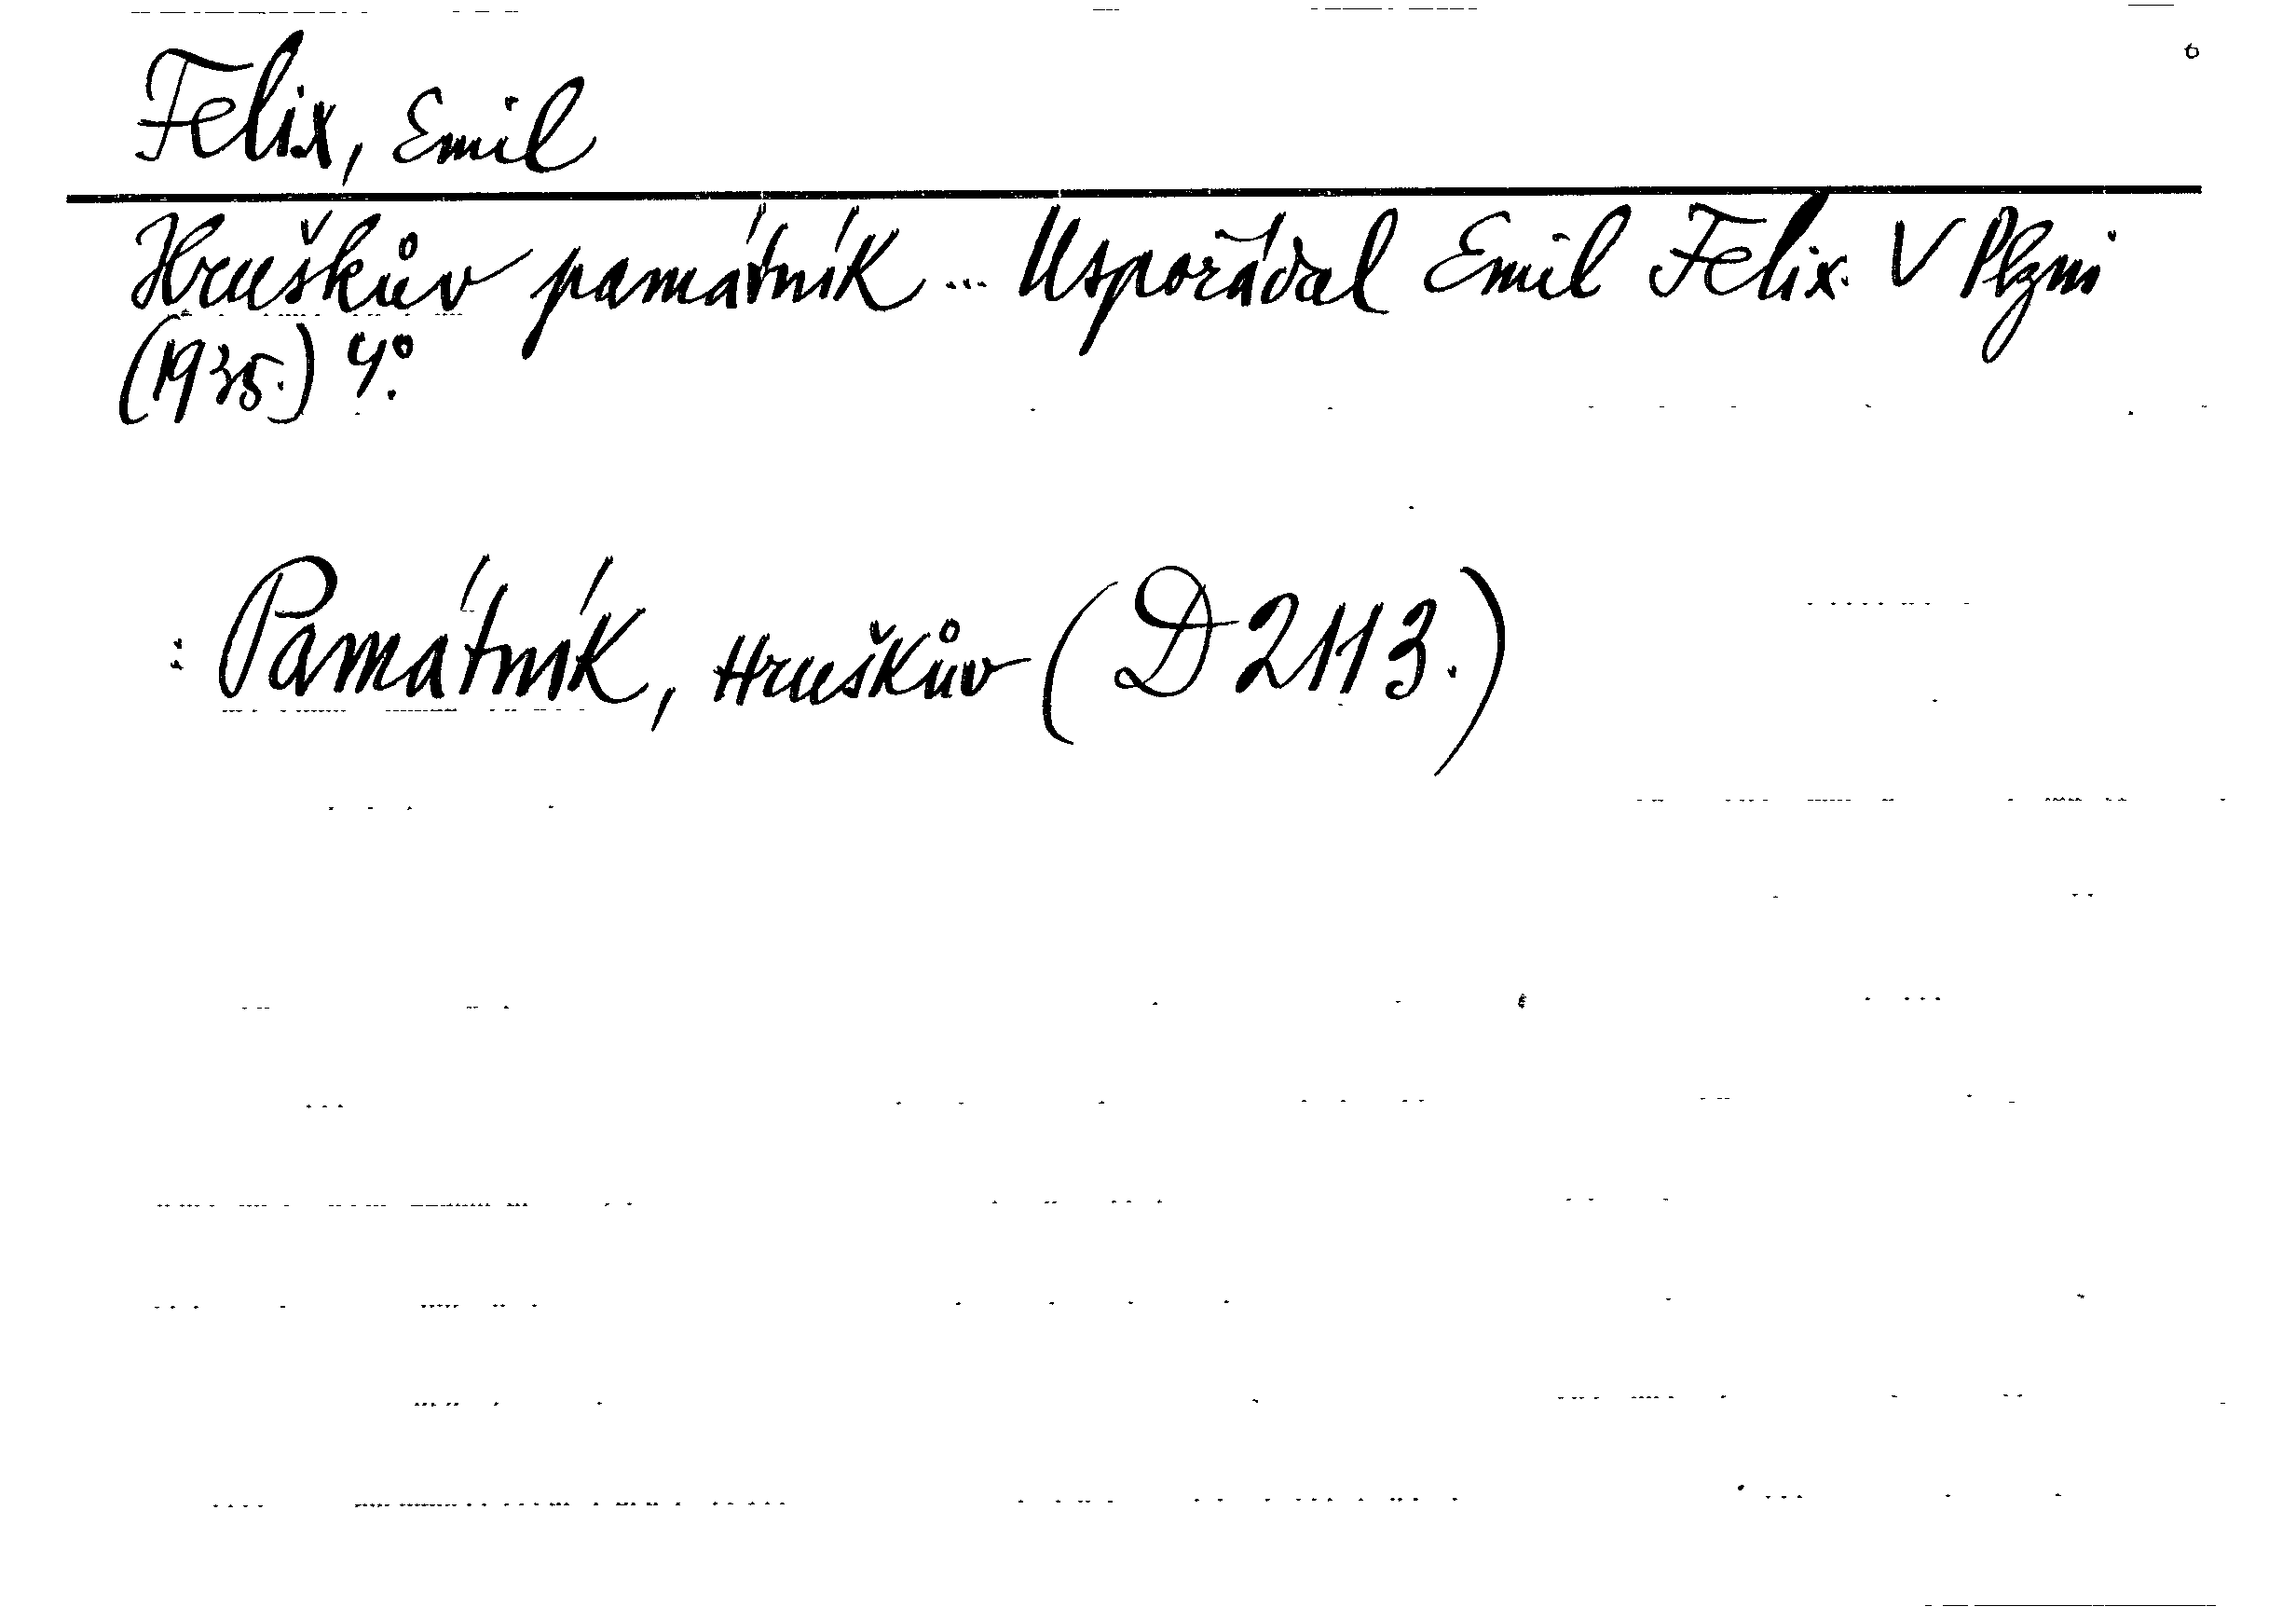 6
Felix, Emil
Hruškův památník ... Uspořádal Emil Felix. V Plzni
(1935.) 4°.
: Památník, Hruškův (D 2113.)